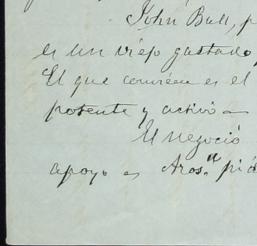 John Bull, p
es un viejo gastado,
El que conviene es el
potente y activo
El negocio
apoyo es Aros.